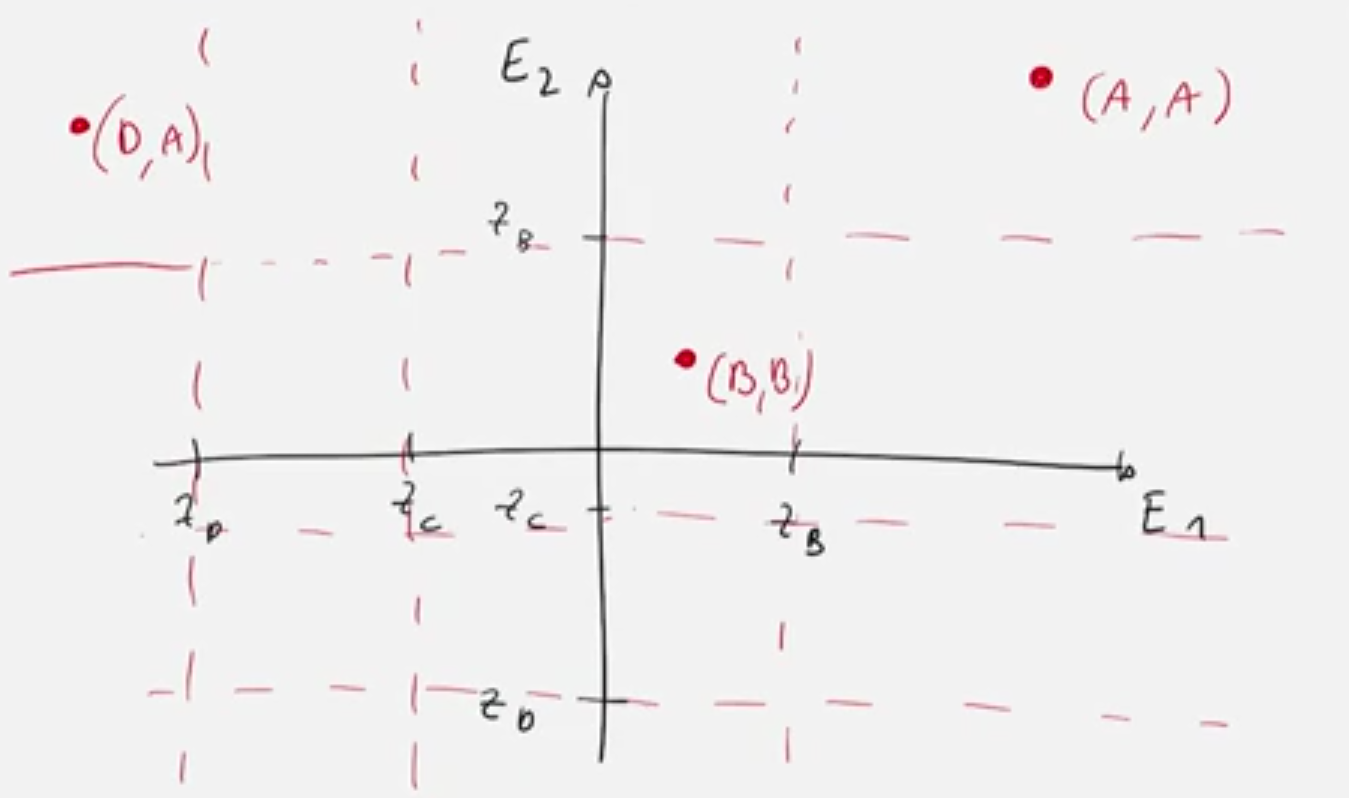 E2
(A, A)
(D, A)
zB
(B, B)
zD
zC
zC
zB
E1
zD